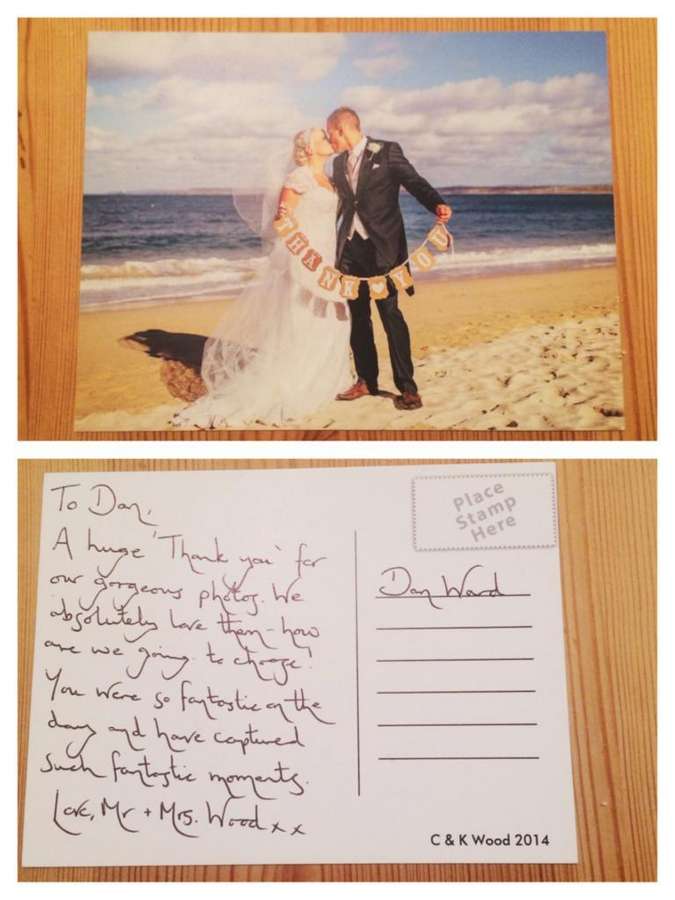 THANK ♥ YOU
To Dan,
A huge 'Thank you' for
our gorgeous photos. We
absolutely love them - how
are we going to choose!
You were so fantastic on the
day and have captured
such fantastic moments.
Love, Mr + Mrs. Wood x x
Place
Stamp
Here
Dan Ward
C & K Wood 2014